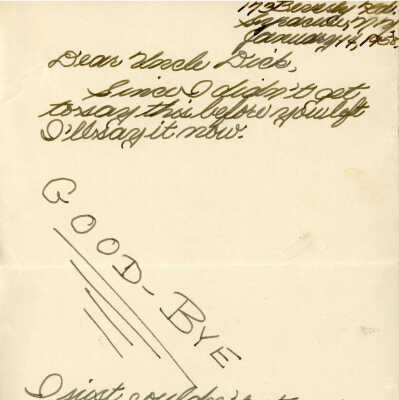 Syracuse, N.Y.
January 14, 1950.
Dear Uncle Dick,
Since I didn't get
to say this before you left
I'll say it now.
GOOD-BYE
I just couldn't